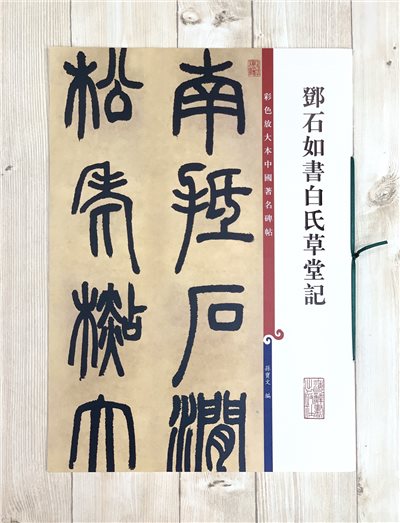 鄧石如書白氏草堂記
彩色放大本中國著名碑帖
孫寶文 編
南抵石澗
松老檆大